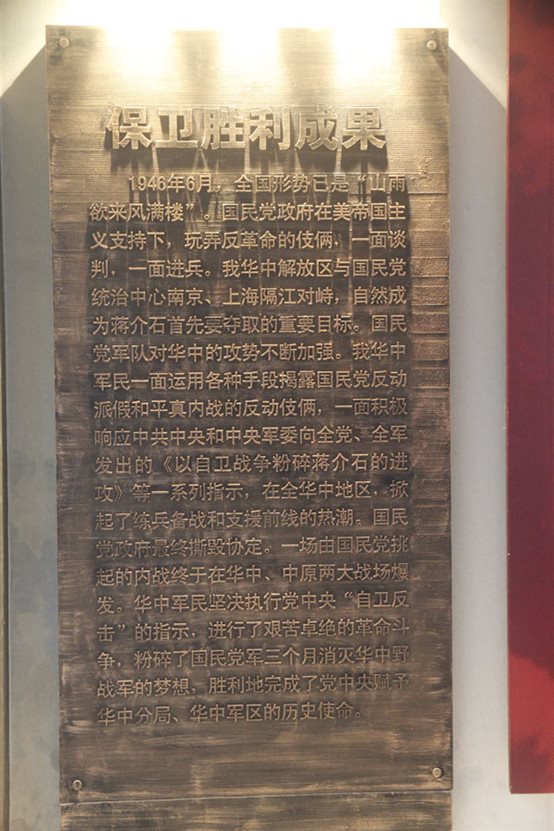 保卫胜利成果
1946年6月，全国形势已是“山雨
欲来风满楼”。国民党政府在美帝国主
义支持下，玩弄反革命的伎俩，一面谈
判，一面进兵。我华中解放区与国民党
统治中心南京、上海隔江对峙，自然成
为蒋介石首先要夺取的重要目标。国民
党军队对华中的攻势不断加强。我华中
军民一面运用各种手段揭露国民党反动
派假和平真内战的反动伎俩，一面积极
响应中共中央和中央军委向全党、全军
发出的《以自卫战争粉碎蒋介石的进
攻》等一系列指示，在全华中地区，掀
起了练兵备战和支援前线的热潮。国民
党政府最终撕毁协定。一场由国民党挑
起的内战终于在华中、中原两大战场爆
发。华中军民坚决执行党中央“自卫反
击”的指示，进行了艰苦卓绝的革命斗
争，粉碎了国民党军三个月消灭华中野
战军的梦想，胜利地完成了党中央赋予
华中分局、华中军区的历史使命。